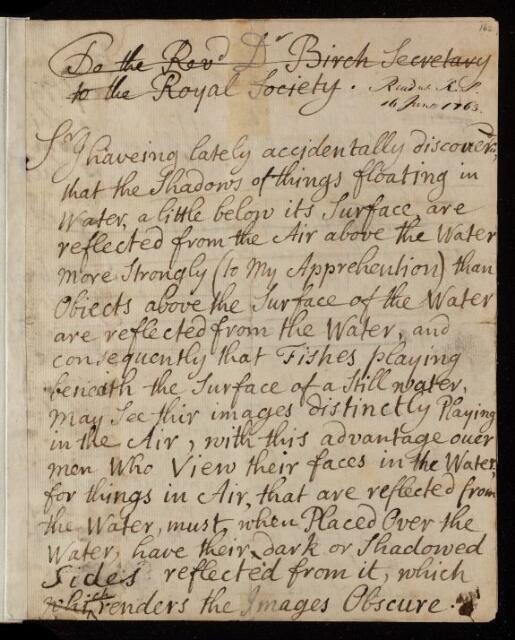 162
To the Revd Dr Birch Secretary
to the Royal Society. Read at R.S.
16 June 1763.
Sr I haveing lately accidentally discoverd,
that the Shadows of things floating in
Water, a little below its Surface, are
reflected from the Air above the Water
more Strongly (to My Apprehention) than
Obiects above the Surface of the Water
are reflected from the Water, and
consequently that Fishes playing
beneath the Surface of a Still water,
may See thir images distinctly Playing
in the Air, with this advantage over
men Who View their faces in the Water,
for things in Air, that are reflected from
the Water, must, when Placed Over the
Water, have their dark or Shadowed
Sides reflected from it, which
which renders the Images Obscure.